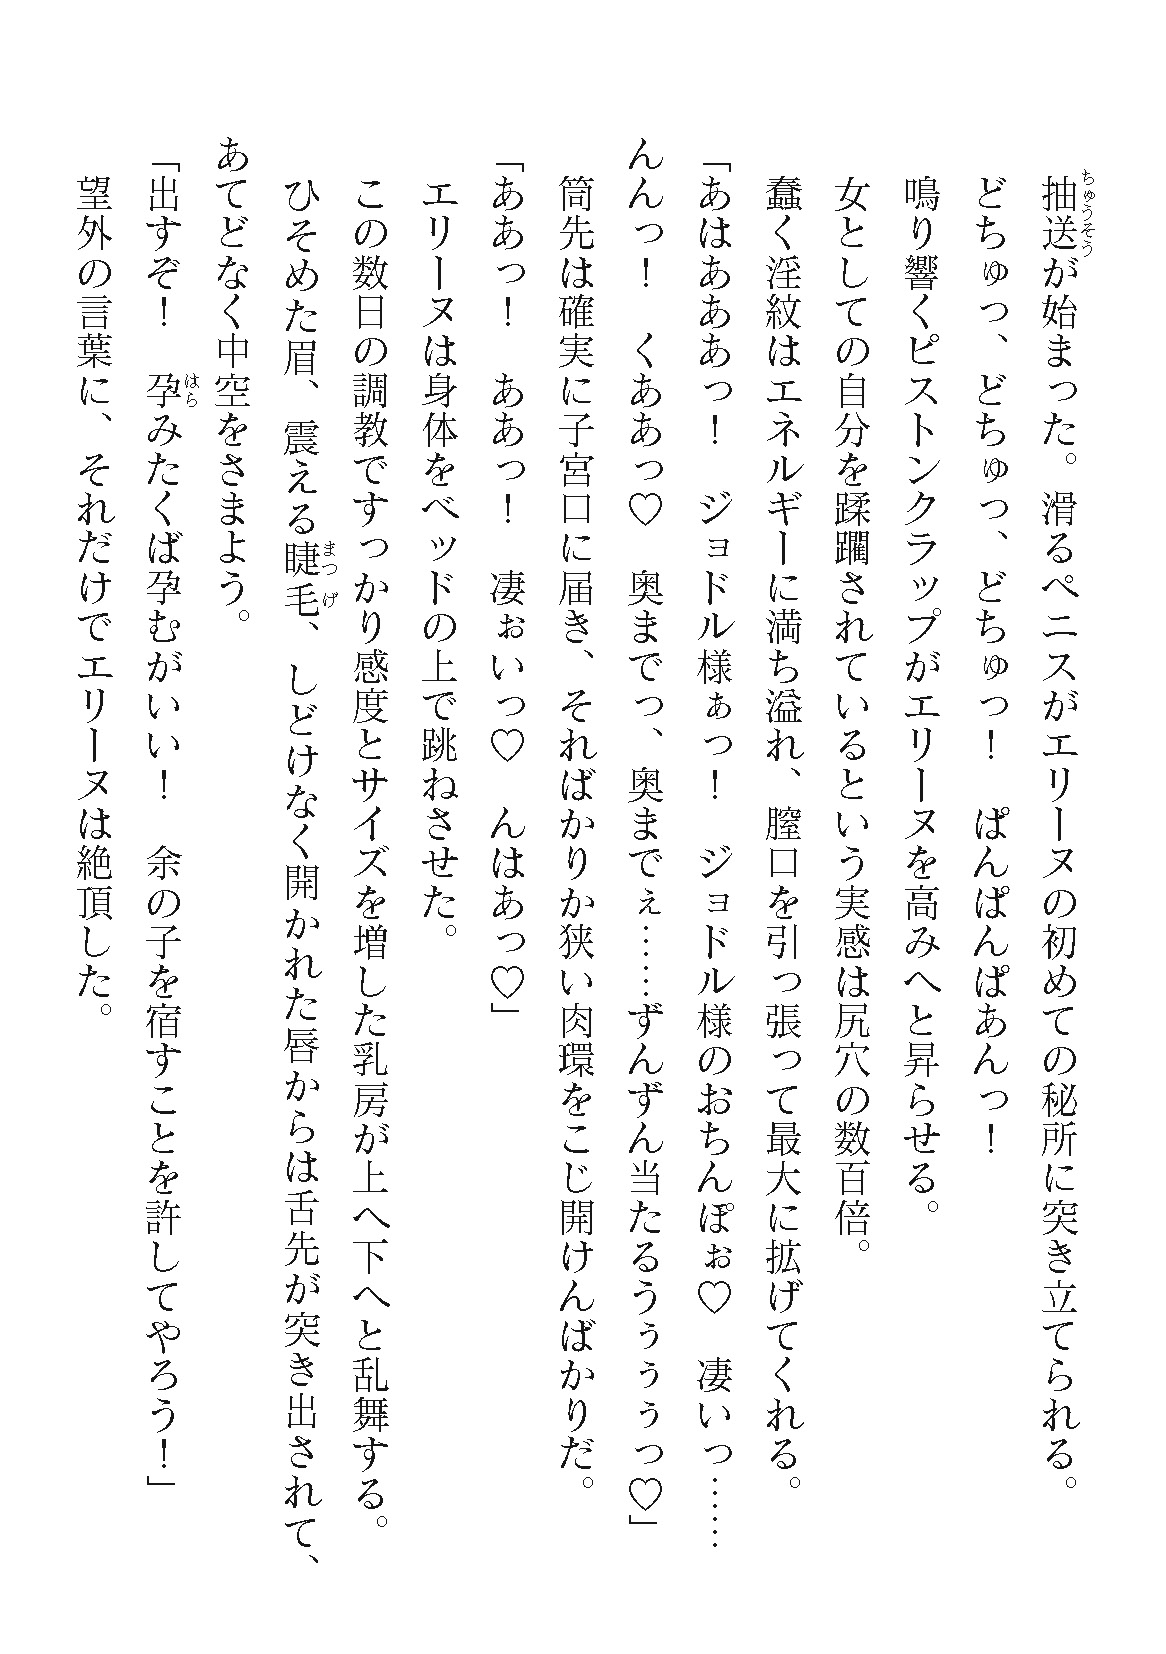 抽送が始まった。滑るペニスがエリーヌの初めての秘所に突き立てられる。
どちゅっ、どちゅっ、どちゅっ！　ぱんぱんぱあんっ！
鳴り響くピストンクラップがエリーヌを高みへと昇らせる。
女としての自分を蹂躙されているという実感は尻穴の数百倍。
蠢く淫紋はエネルギーに満ち溢れ、膣口を引っ張って最大に拡げてくれる。
「あはあああっ！　ジョドル様ぁっ！　ジョドル様のおちんぽぉ♡　凄いっ……
んんっ！　くああっ♡　奥までっ、奥までぇ……ずんずん当たるうぅぅぅっ♡」
筒先は確実に子宮口に届き、そればかりか狭い肉環をこじ開けんばかりだ。
「ああっ！　ああっ！　凄ぉいっ♡　んはあっ♡」
エリーヌは身体をベッドの上で跳ねさせた。
この数日の調教ですっかり感度とサイズを増した乳房が上へ下へと乱舞する。
ひそめた眉、震える睫毛、しどけなく開かれた唇からは舌先が突き出されて、
あてどなく中空をさまよう。
「出すぞ！　孕みたくば孕むがいい！　余の子を宿すことを許してやろう！」
望外の言葉に、それだけでエリーヌは絶頂した。
ちゅうそう
まつげ
はら